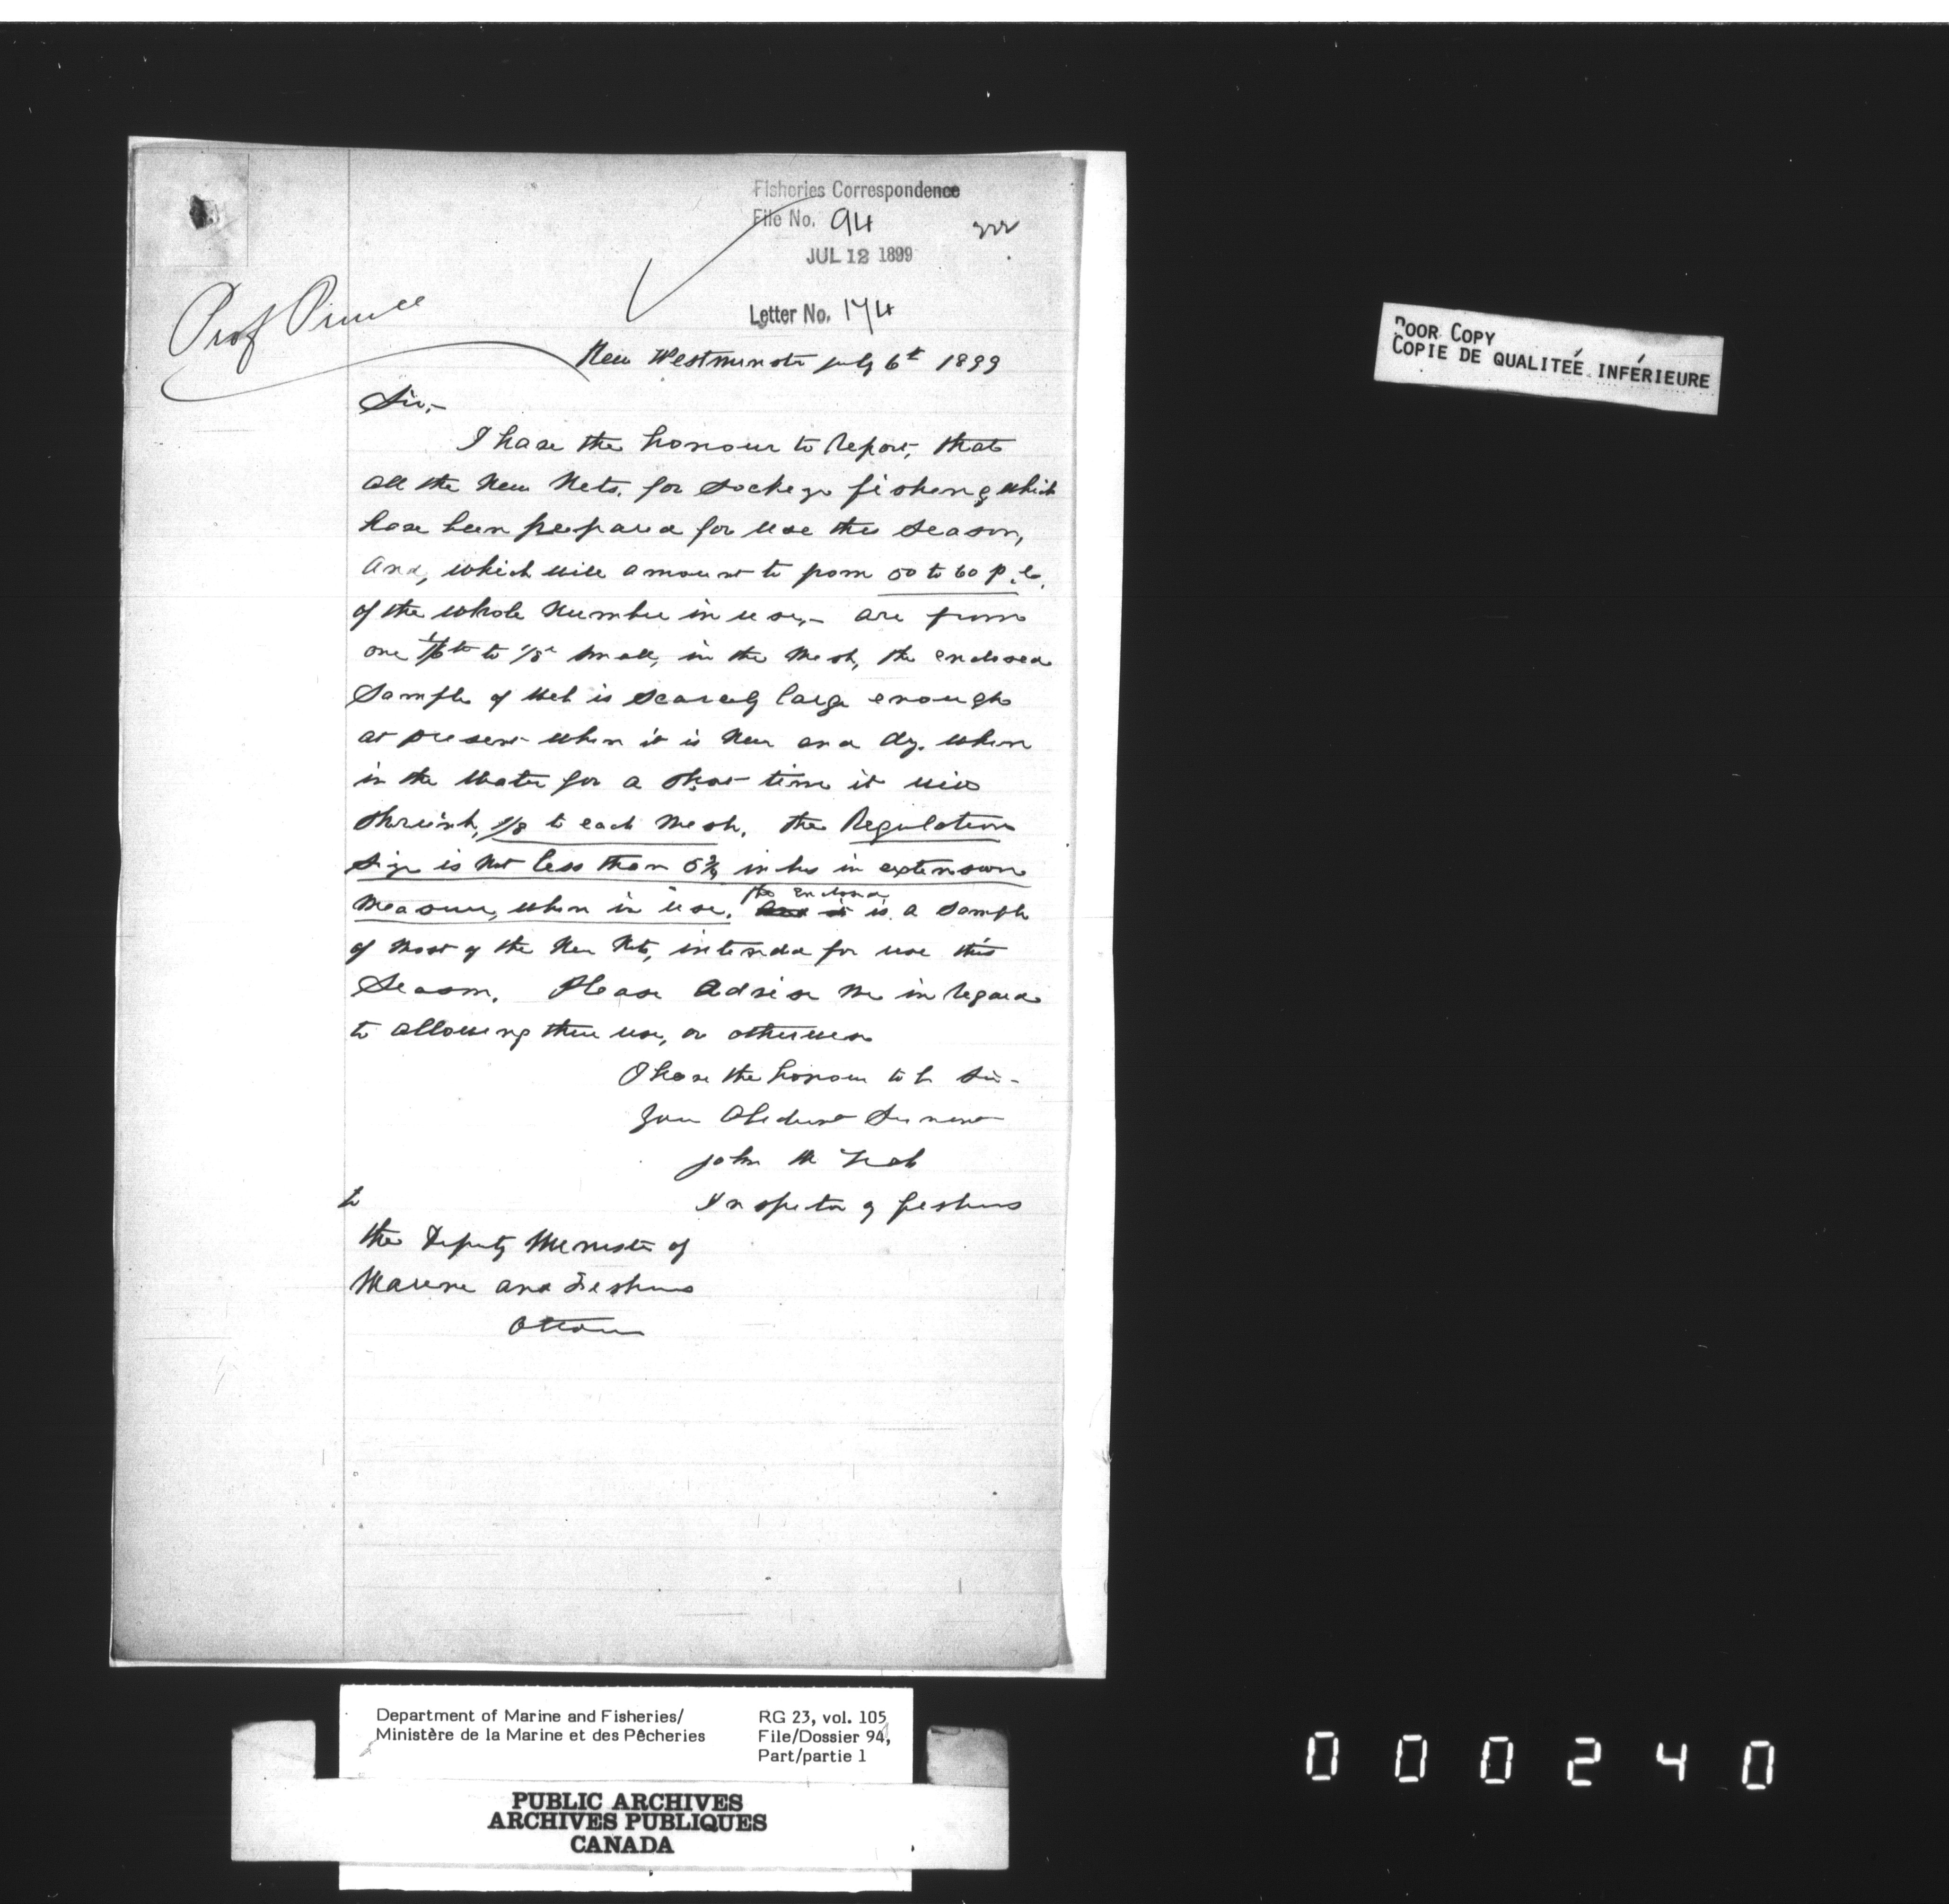 Fisheries Correspondence
File No. 94
JUL 12 1899
Letter No. 174
Prof Prince
New Westminster July 6th 1899
Sir,-
I have the honour to Report, that
all the New Nets, for Sockeye fishing which
have been prepared for use this season,
and, which will amount to from 50 to 60 p.c.
of the whole number in use,- are from
one 1/6th to 1/8th small, in the Mesh, the enclosed
Sample of Web is scarcely large enough
at present when it is New and dry. when
in the Water for a short time it will
shrink, 1/8 to each Mesh. the Regulation
size is Not less than 5 3/4 inches in extension
Measure, when in use. the Enclosed is a Sample
of Most of the New Nets, intended for use this
Season. Please Advise Me in regard
to allowing their use, or otherwise
I have the honour to be Sir-
Your Obedient Servant
John McNab
Inspector of fisheries
to
the Deputy Minister of
Marine and Fisheries
Ottawa
POOR COPY
COPIE DE QUALITEÉ INFÉRIEURE
Department of Marine and Fisheries/
Ministère de la Marine et des Pêcheries
RG 23, vol. 105
File/Dossier 94,
Part/partie 1
PUBLIC ARCHIVES
ARCHIVES PUBLIQUES
CANADA
000240